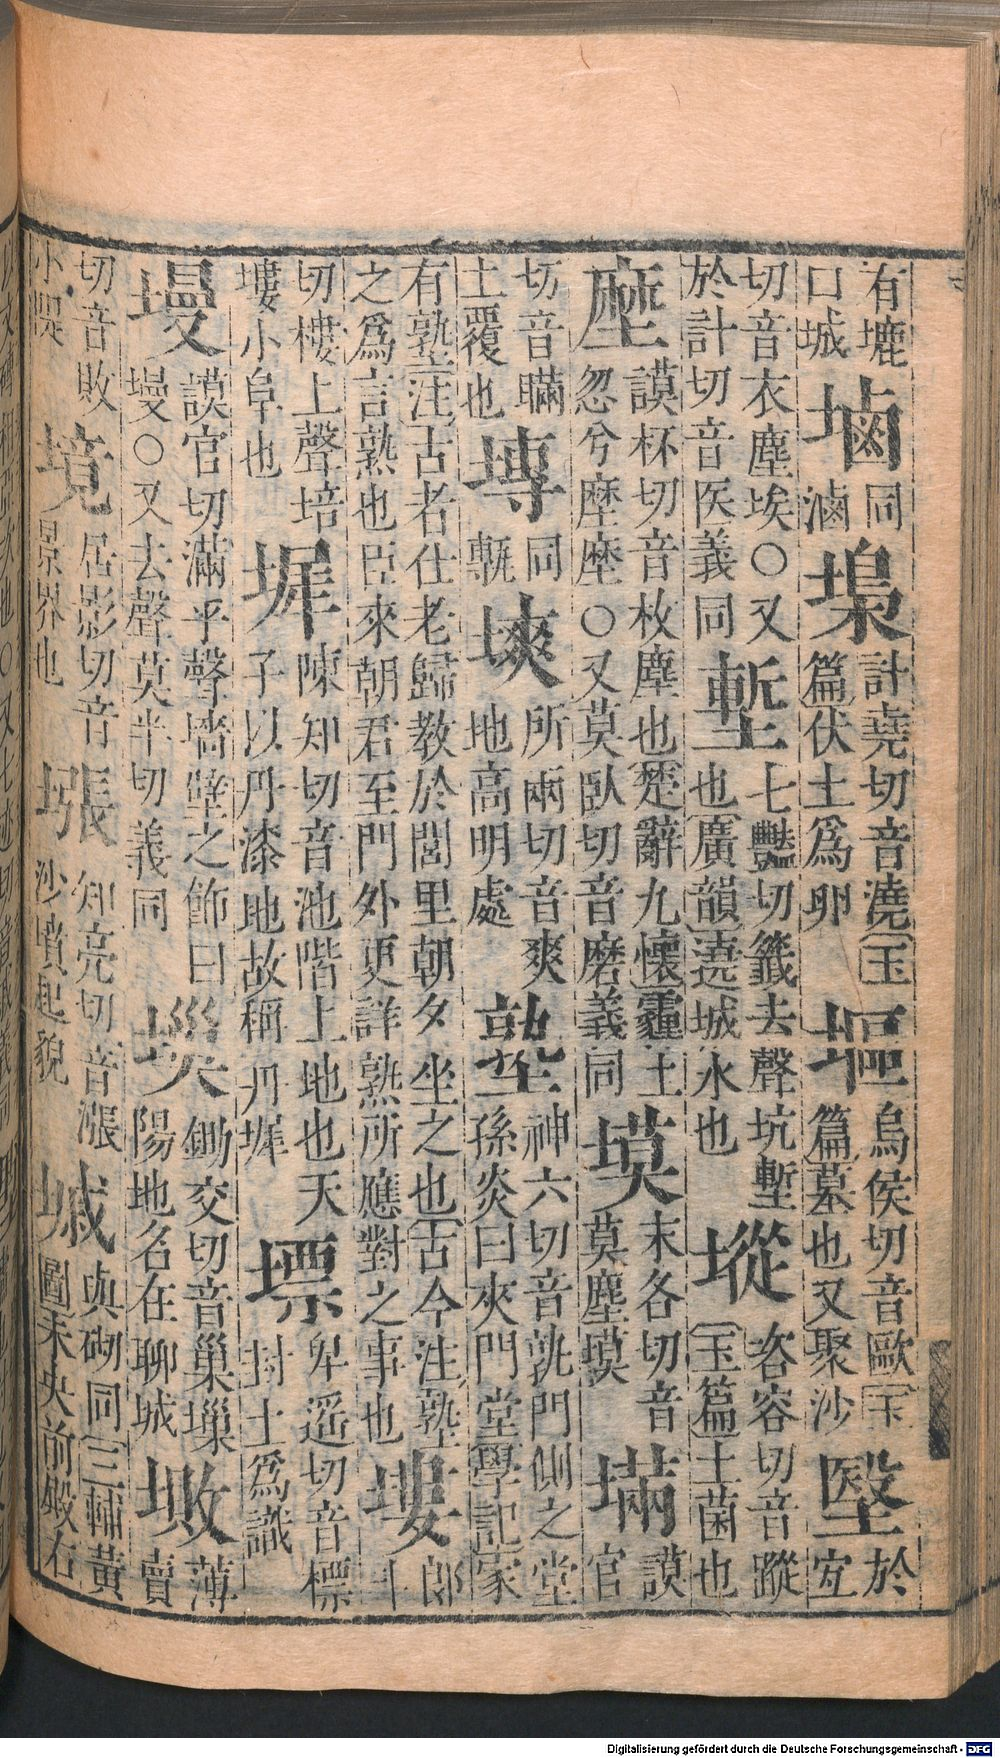 有塶
口城
塷
同
滷
計堯切音澆玉
篇伏土爲卵
塸
烏侯切音歐玉
篇墓也又聚沙
於
宐
切音衣塵埃○又
於計切音医義同
塹
七豔切籤去聲坑塹
也廣韻遶城水也
㙡
咨容切音蹤
玉篇土菌也
塺
謨杯切音枚塵也楚辭九懷霾土
忽兮塺塺○又莫臥切音磨義同
塻
末各切音
莫塵塻
謨
官
切音瞞
土覆也
塼
同
甎
塽
所兩切音爽
地高明處
塾
神六切音孰門側之堂
孫炎曰夾門堂學記家
有塾注古者仕老歸教於閭里朝夕坐之也古今注塾
之爲言熟也臣來朝君至門外更詳熟所應對之事也
塿
郎
斗
切樓上聲培
塿小阜也
墀
陳知切音池階上地也天
子以丹漆地故稱丹墀
墂
卑遙切音標
封土爲識
墁
謨官切滿平聲墻壁之飾曰
墁○又去聲莫半切義同
鋤交切音巢
陽地名在聊城
薄
賣
切音敗
小隄
境
居影切音
景界也
知亮切音漲
沙墳起貌
墄
與砌同三輔黃
圖未央前殿右
Digitalisierung gefördert durch die Deutsche Forschungsgemeinschaft - DFG